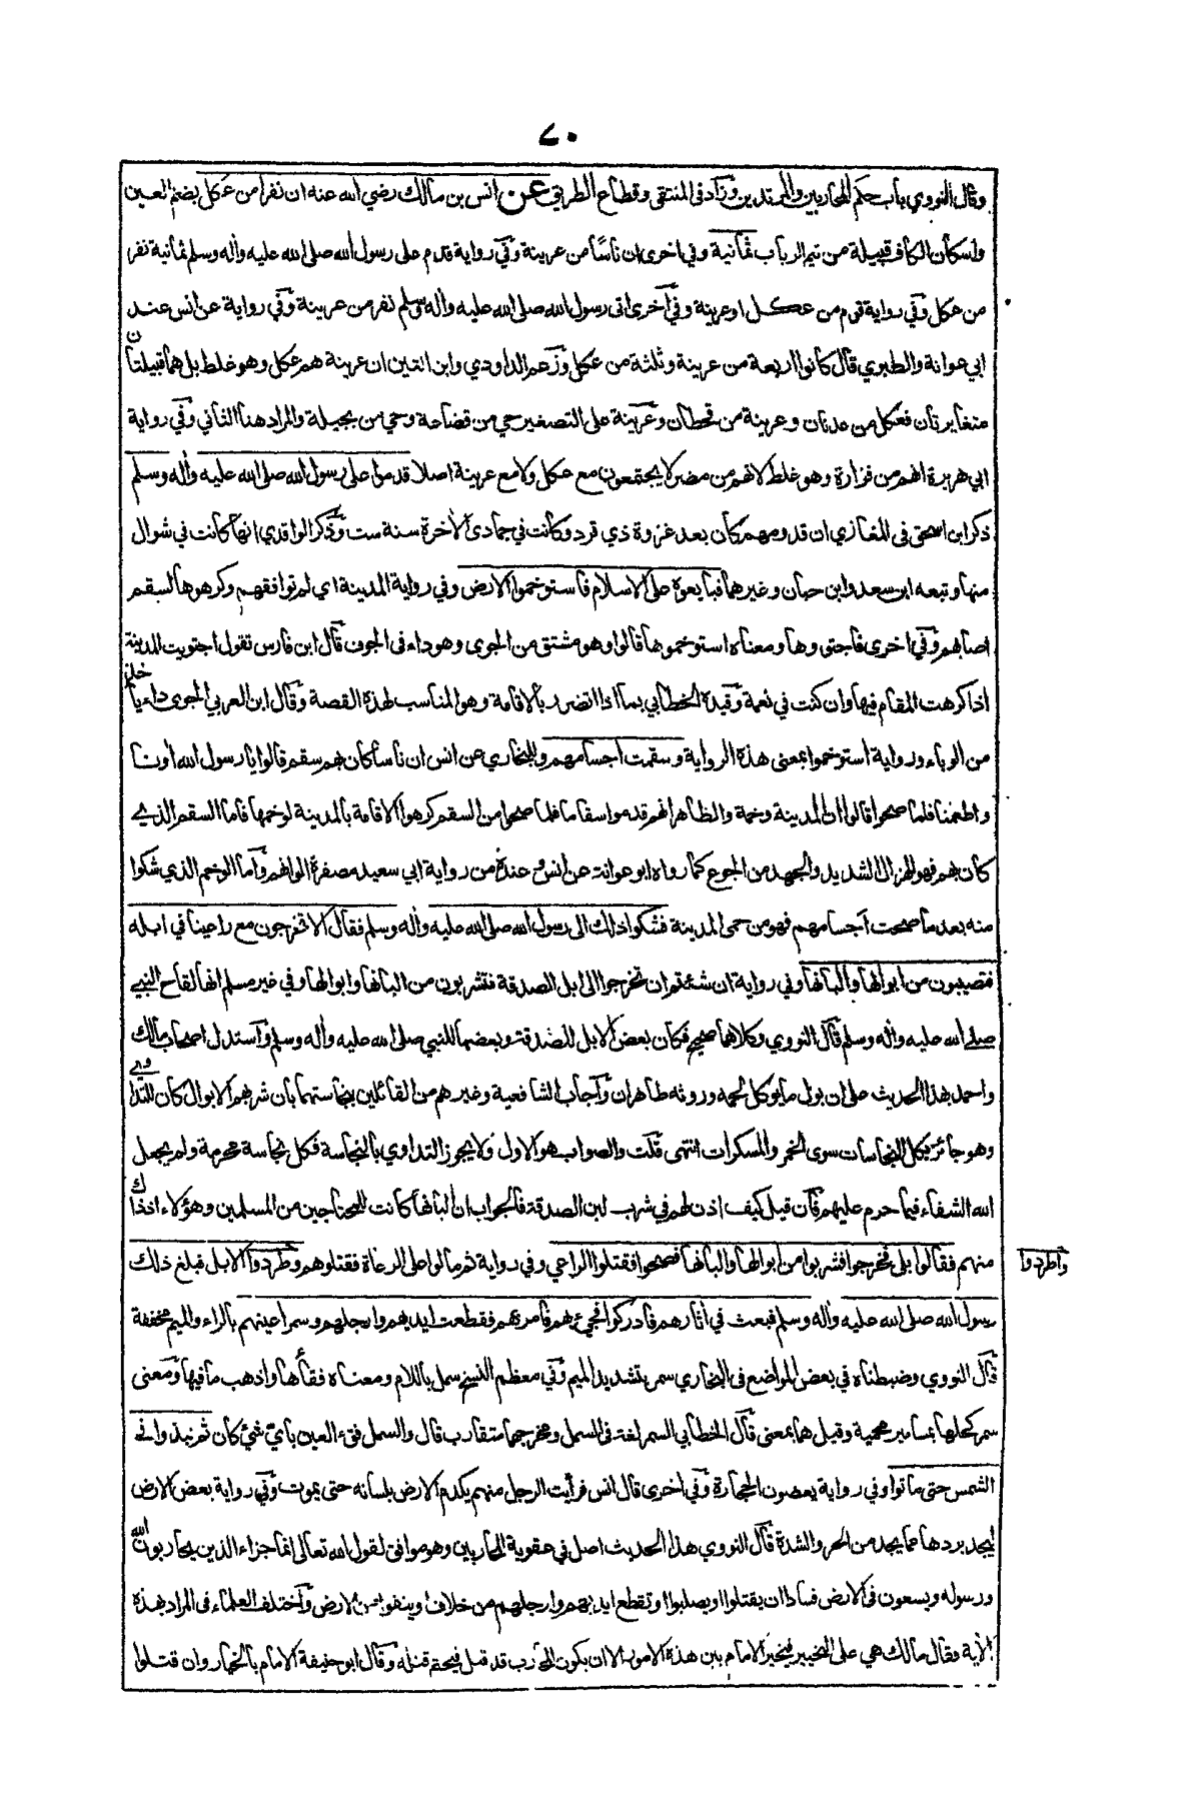 ٧٠
وقال النووي باب حكم المحاربين والمرتدين وزاد في المنتقى وقطاع الطريق عن انس بن مالك رضي الله عنه ان نفرا من عكل بضم العين
واسكان الكاف قبيلة من تيم الرباب ثمانية وفي اخرى ان ناسا من عرينة وفي رواية قدم على رسول الله صلى الله عليه واله وسلم ثمانية نفر
من عكل وفي رواية قوم من عكل او عرينة وفي اخرى اتى رسول الله صلى الله عليه واله وسلم نفر من عرينة وفي رواية عن انس عند
ابي عوانة والطبري قال كانوا اربعة من عرينة وثلثة من عكل وزعم الداودي وابن التين ان عرينة هم عكل وهو غلط بل هما قبيلتان
متغايرتان فعكل من عدنان وعرينة من قحطان وعرينة على التصغير حي من قضاعة وحي من بجيلة والمراد هنا الثاني وفي رواية
ابي هريرة انهم من فزارة وهو غلط لانهم من مضر لا يجتمعون مع عكل ولا مع عرينة اصلا قدموا على رسول الله صلى الله عليه واله وسلم
ذكر ابن اسحق في المغازي ان قدومهم كان بعد غزوة ذي قرد وكانت في جمادى الاخرة سنة ست وذكر الواقدي انها كانت في شوال
منها وتبعه ابن سعد وابن حبان وغيرهما فبايعوه على الاسلام فاستوخموا الارض وفي رواية المدينة اي لم توافقهم وكرهوها لسقم
اصابهم وفي اخرى فاجتووها ومعناه استوخموها قالوا وهو مشتق من الجوى وهو داء في الجوف قال ابن فارس تقول اجتويت المدينة
اذا كرهت المقام فيها وان كنت في نعمة وقيده الخطابي بما اذا تضرر بالاقامة وهو المناسب لهذه القصة وقال ابن العربي الجوى داء ياخذ
من الوباء ورواية استوخموا بمعنى هذه الرواية وسقمت اجسامهم وللبخاري عن انس ان ناسا كان بهم سقم قالوا يا رسول الله اونا
واطعمنا فلما صحوا قالوا ان المدينة وخمة والظاهر انهم قدموا سقاما فلما صحوا من السقم كرهوا الاقامة بالمدينة لوخمها فاما السقم الذي
كان بهم فهو الهزال الشديد والجهد من الجوع كما رواه ابو عوانة عن انس وعنده من رواية ابي سعيد مصفرة الوانهم واما الوخم الذي شكوا
منه بعد ما صحت اجسامهم فهو من حمى المدينة فشكوا ذلك الى رسول الله صلى الله عليه واله وسلم فقال الا تخرجون مع راعينا في ابله
فتصيبون من ابوالها والبانها وفي رواية ان شئتم ان تخرجوا الى ابل الصدقة فتشربون من البانها وابوالها وفي غير مسلم انها لقاح النبي
صلى الله عليه واله وسلم قال النووي وكلاهما صحيح فكان بعض الابل للصدقة وبعضها للنبي صلى الله عليه واله وسلم واستدل اصحاب مالك
واحمد بهذا الحديث على ان بول ما يوكل لحمه وروثه طاهران واجاب الشافعية وغيرهم من القائلين بنجاستهما بان شربهم الابوال كان للتداوي
وهو جائز بكل النجاسات سوى الخمر والمسكرات انتهى قلت والصواب هو الاول ولا يجوز التداوي بالنجاسة فكل نجاسة محرمة ولم يجعل
الله الشفاء فيما حرم عليهم فان قيل كيف اذن لهم في شرب لبن الصدقة فالجواب ان البانها كانت للمحتاجين من المسلمين وهؤلاء اذ ذاك
منهم فقالوا بلى فخرجوا فشربوا من ابوالها والبانها فصحوا فقتلوا الراعي وفي رواية ثم مالوا على الرعاة فقتلوهم وطردوا الابل فبلغ ذلك
واطردوا
رسول الله صلى الله عليه واله وسلم فبعث في اثارهم فادركوا فجيء بهم فامر بهم فقطعت ايديهم وارجلهم وسمر اعينهم بالراء والميم مخففة
قال النووي وضبطناه في بعض المواضع في البخاري سمر بتشديد الميم وفي معظم النسخ سمل باللام ومعناه فقأها واذهب ما فيها ومعنى
سمر كحلها بمسامير محمية وقيل هما بمعنى قال الخطابي السمر لغة في السمل ومخرجهما متقارب قال والسمل فقء العين باي شيئ كان ثم نبذوا في
الشمس حتى ماتوا وفي رواية يعضون الحجارة وفي اخرى قال انس فرأيت الرجل منهم يكدم الارض بلسانه حتى يموت وفي رواية بعض الارض
ليجد بردها مما يجد من الحر والشدة قال النووي هذا الحديث اصل في عقوبة المحاربين وهو موافق لقول الله تعالى انما جزاء الذين يحاربون الله
ورسوله ويسعون في الارض فسادا ان يقتلوا او يصلبوا او تقطع ايديهم وارجلهم من خلاف او ينفوا من الارض واختلف العلماء في المراد بهذه
الاية فقال مالك هي على التخيير فيخير الامام بين هذه الامور الا ان يكون المحارب قد قتل فيحتم قتله وقال ابو حنيفة الامام بالخيار وان قتلوا